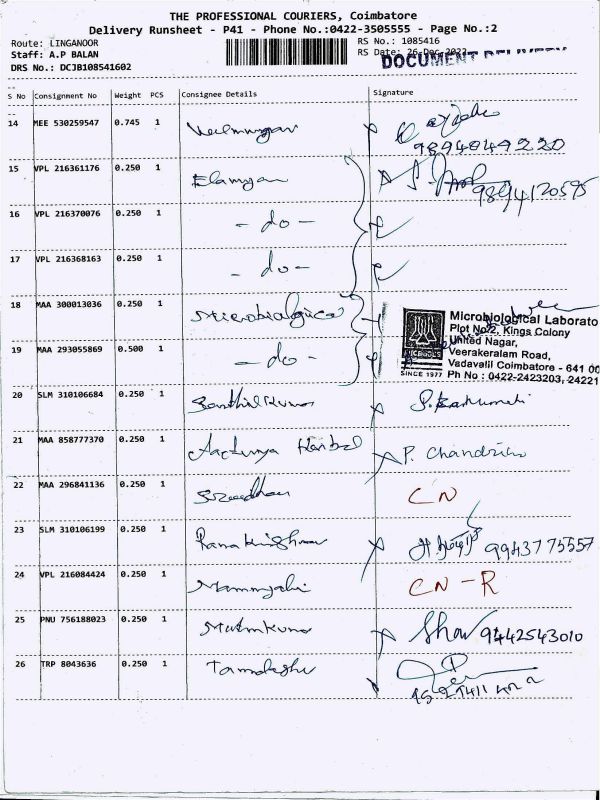 THE PROFESSIONAL COURIERS, Coimbatore
Delivery Runsheet - P41 - Phone No.:0422-3505555 - Page No.:2
Route: LINGANOOR
RS No.: 1085416
Staff: A.P BALAN
RS Date: 26-Dec-2022
DRS No.: DCJB108541602
DOCUMENT DELIVERY
S No Consignment No Weight PCS Consignee Details Signature
14 MEE 530259547 0.745 1 Velmurgan
9894049220
15 VPL 216361176 0.250 1 Elamgan
9894120595
16 VPL 216370076 0.250 1 - do -
17 VPL 216368163 0.250 1 - do -
18 MAA 300013036 0.250 1 Microbiological
19 MAA 293055869 0.500 1 - do -
Microbiological Laborato
Plot No.2, Kings Colony
United Nagar,
Veerakeralam Road,
Vadavalii Coimbatore - 641 00
SINCE 1977 Ph No : 0422-2423203, 24221
20 SLM 310106684 0.250 1 Santhilkumar
21 MAA 858777370 0.250 1 Herbal P. Chandrika
22 MAA 296841136 0.250 1 Sreedhar CN
23 SLM 310106199 0.250 1 Ramakrishnan 9943775557
24 VPL 216084424 0.250 1 CN - R
25 PNU 756188023 0.250 1 9442543010
26 TRP 8043636 0.250 1